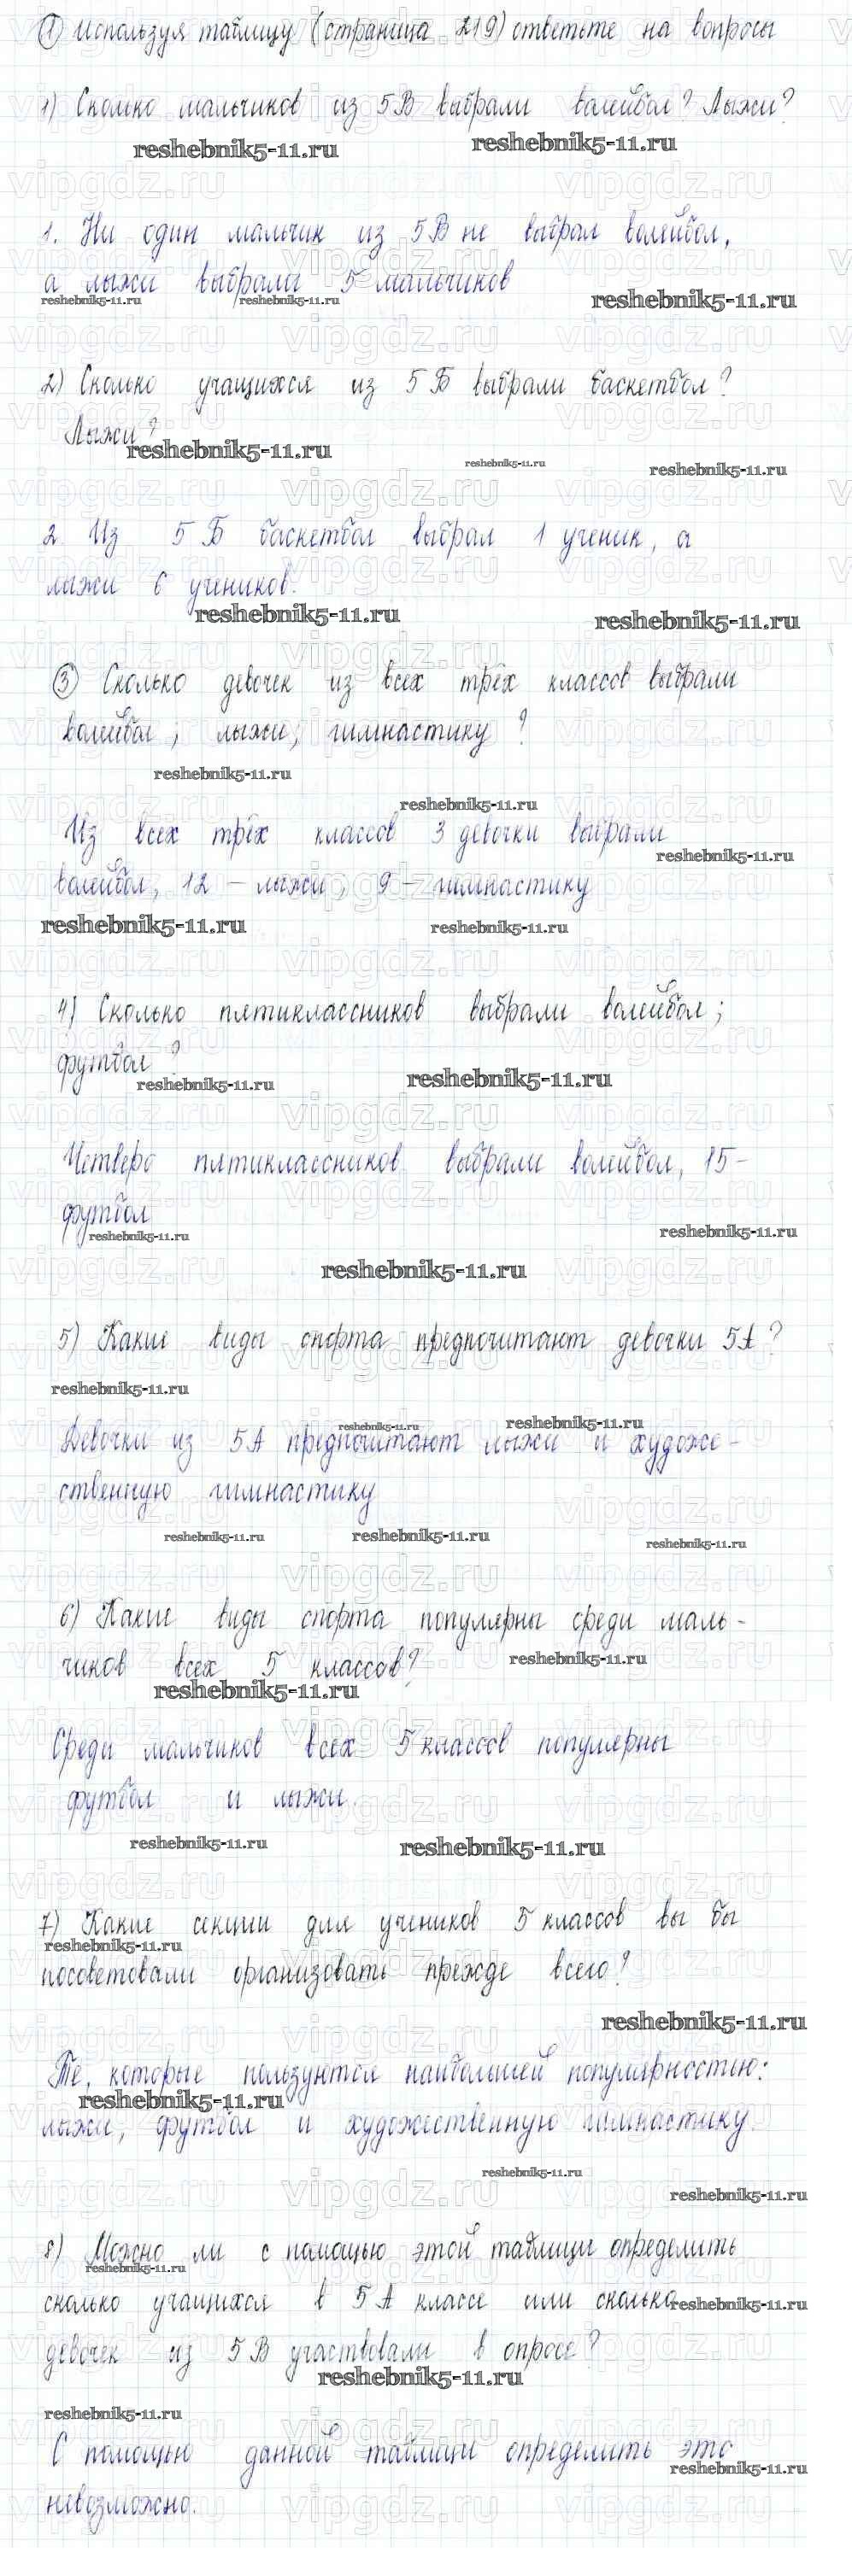 ① Используя таблицу (страница 219) ответьте на вопросы
1) Сколько мальчиков из 5В выбрали волейбол? Лыжи?
reshebnik5-11.ru reshebnik5-11.ru
1. Ни один мальчик из 5В не выбрал волейбол,
а лыжи выбрали 5 мальчиков
reshebnik5-11.ru reshebnik5-11.ru reshebnik5-11.ru
2) Сколько учащихся из 5Б выбрали баскетбол?
Лыжи?
reshebnik5-11.ru reshebnik5-11.ru reshebnik5-11.ru
2. Из 5Б баскетбол выбрал 1 ученик, а
лыжи 6 учеников.
reshebnik5-11.ru reshebnik5-11.ru
③ Сколько девочек из всех трёх классов выбрали
волейбол; лыжи; гимнастику?
reshebnik5-11.ru
reshebnik5-11.ru
Из всех трёх классов 3 девочки выбрали
reshebnik5-11.ru
волейбол, 12 - лыжи, 9 - гимнастику
reshebnik5-11.ru reshebnik5-11.ru
4) Сколько пятиклассников выбрали волейбол;
футбол?
reshebnik5-11.ru reshebnik5-11.ru
Четверо пятиклассников выбрали волейбол, 15 -
футбол
reshebnik5-11.ru reshebnik5-11.ru
reshebnik5-11.ru
5) Какие виды спорта предпочитают девочки 5А?
reshebnik5-11.ru
reshebnik5-11.ru reshebnik5-11.ru
Девочки из 5А предпочитают лыжи и художе-
ственную гимнастику
reshebnik5-11.ru reshebnik5-11.ru reshebnik5-11.ru
6) Какие виды спорта популярны среди маль-
чиков всех 5 классов?
reshebnik5-11.ru
reshebnik5-11.ru
Среди мальчиков всех 5 классов популярны
футбол и лыжи.
reshebnik5-11.ru reshebnik5-11.ru
7) Какие секции для учеников 5 классов вы бы
reshebnik5-11.ru
посоветовали организовать прежде всего?
reshebnik5-11.ru
Те, которые пользуются наибольшей популярностью:
reshebnik5-11.ru
лыжи, футбол и художественную гимнастику.
reshebnik5-11.ru
reshebnik5-11.ru
8) Можно ли с помощью этой таблицы определить
reshebnik5-11.ru
сколько учащихся в 5А классе или сколько
reshebnik5-11.ru
девочек из 5В участвовали в опросе?
reshebnik5-11.ru
reshebnik5-11.ru
С помощью данной таблицы определить это
reshebnik5-11.ru
невозможно.
vipgdz.ru